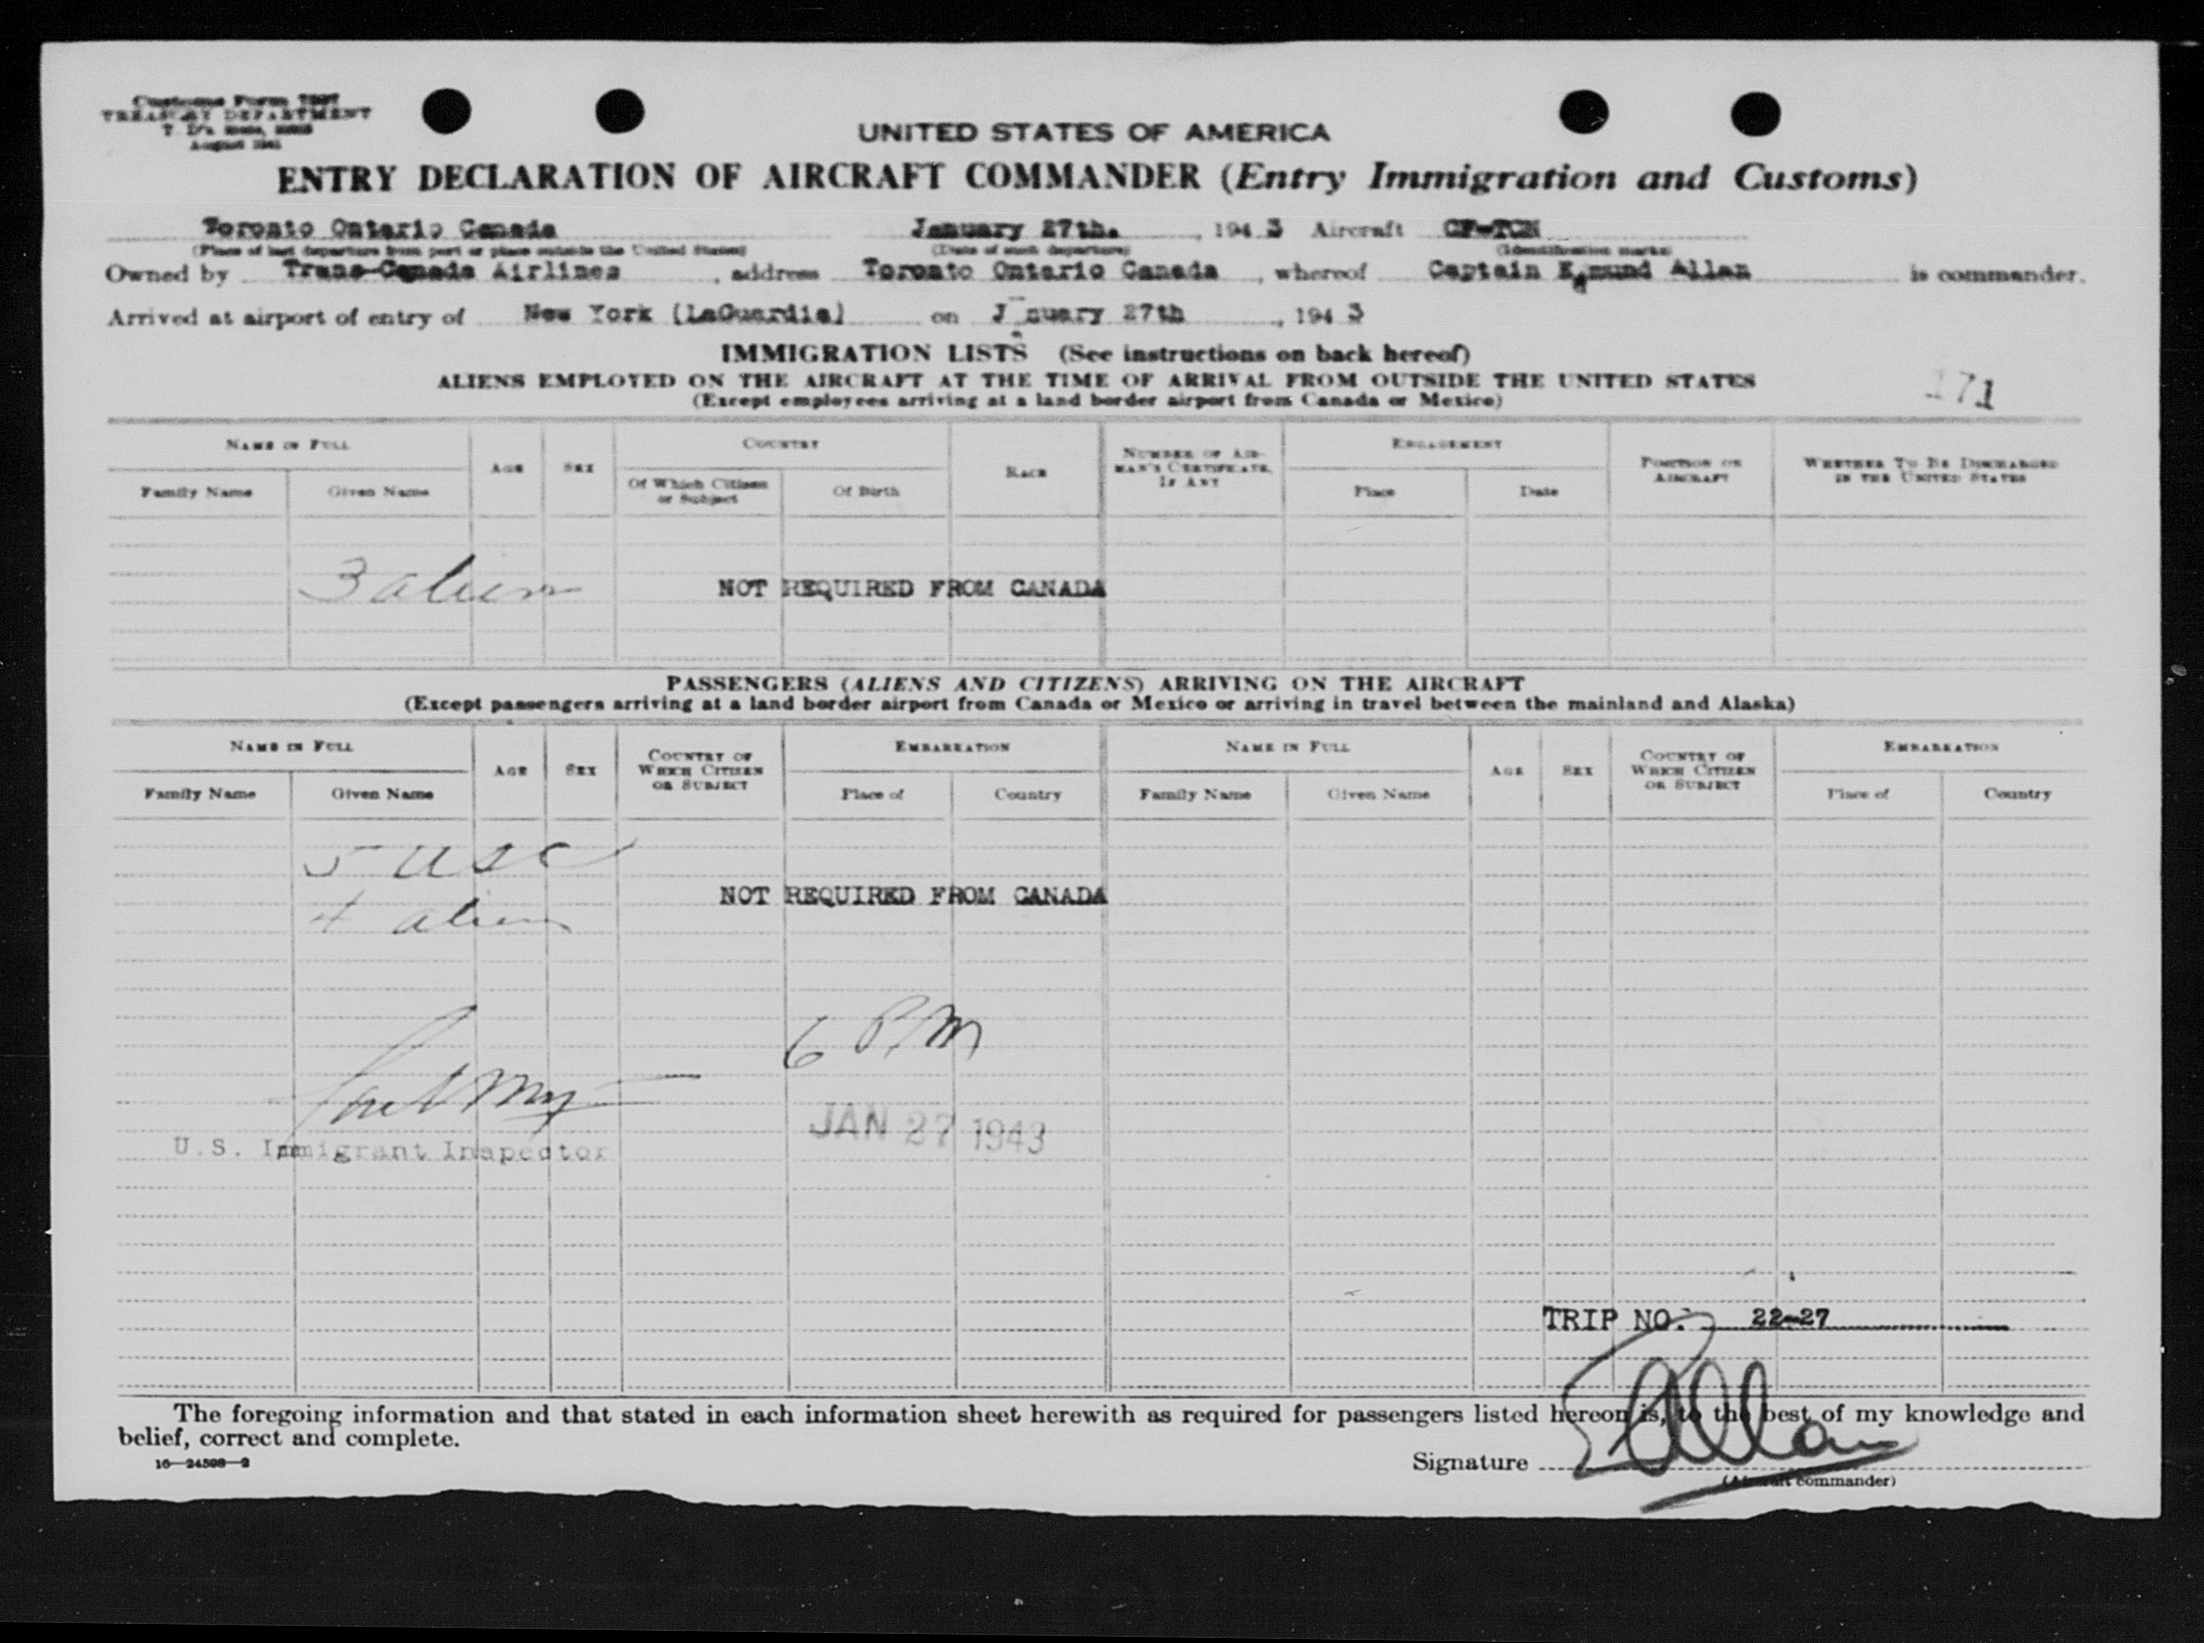 Customs Form 7507
TREASURY DEPARTMENT
August 1941
UNITED STATES OF AMERICA
ENTRY DECLARATION OF AIRCRAFT COMMANDER (Entry Immigration and Customs)
Toronto Ontario Canada January 27th. , 194 3 Aircraft CF-TCN
(Place of last departure from port or place outside the United States) (Date of such departure) (Identification marks)
Owned by Trans-Canada Airlines , address Toronto Ontario Canada , whereof Captain Edmund Allan is commander.
Arrived at airport of entry of New York (LaGuardia) on January 27th , 194 3
IMMIGRATION LISTS (See instructions on back hereof)
ALIENS EMPLOYED ON THE AIRCRAFT AT THE TIME OF ARRIVAL FROM OUTSIDE THE UNITED STATES
171
(Except employees arriving at a land border airport from Canada or Mexico)
NAME IN FULL AGE SEX COUNTRY RACE NUMBER OF AIRMAN'S CERTIFICATE, IF ANY ENGAGEMENT POSITION ON AIRCRAFT WHETHER TO BE DISCHARGED IN THE UNITED STATES
Family Name Given Name Of Which Citizen or Subject Of Birth Place Date
3 aliens NOT REQUIRED FROM CANADA
PASSENGERS (ALIENS AND CITIZENS) ARRIVING ON THE AIRCRAFT
(Except passengers arriving at a land border airport from Canada or Mexico or arriving in travel between the mainland and Alaska)
NAME IN FULL AGE SEX COUNTRY OF WHICH CITIZEN OR SUBJECT EMBARKATION NAME IN FULL AGE SEX COUNTRY OF WHICH CITIZEN OR SUBJECT EMBARKATION
Family Name Given Name Place of Country Family Name Given Name Place of Country
5 USC
4 aliens NOT REQUIRED FROM CANADA
6 PM
JAN 27 1943
U.S. Immigrant Inspector
TRIP NO. 22-27
The foregoing information and that stated in each information sheet herewith as required for passengers listed hereon is, to the best of my knowledge and
belief, correct and complete.
16—24598—2
Signature E Allan
(Aircraft commander)